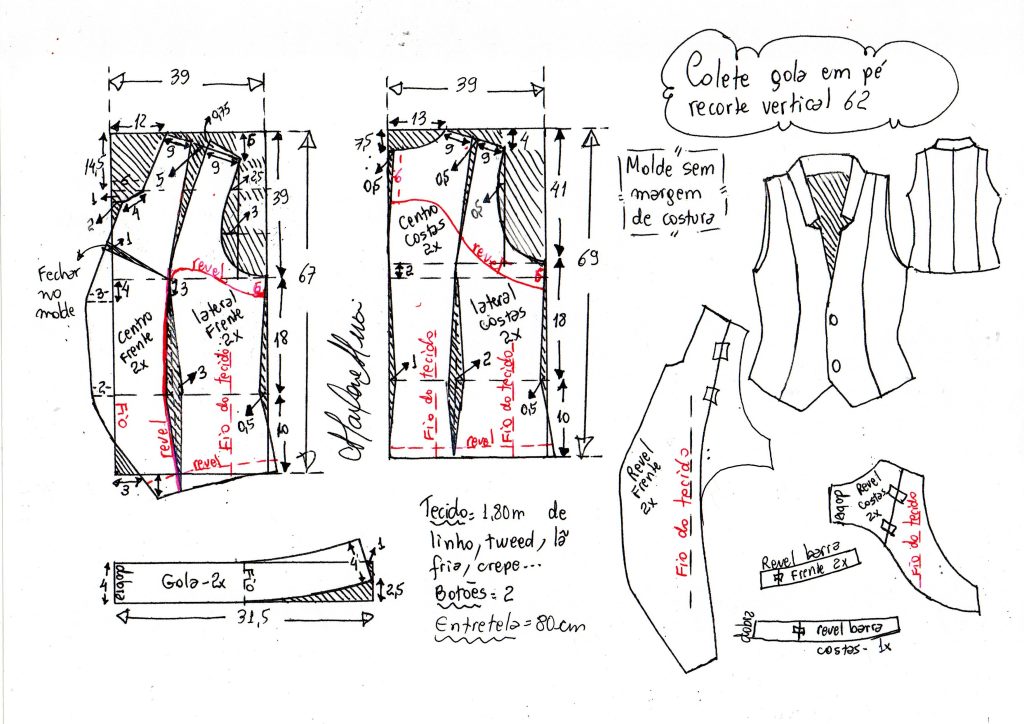 Colete gola em pé
recorte vertical 62
Molde sem
margem
de costura
39
12
0,75
9
9
6
14,5
5
5
1
2
4
2,5
3
39
67
1
Fechar
no
molde
revel
6
3
4
3
Centro
Frente
2x
lateral
Frente
2x
18
3
2
Fio
revel
Fio do tecido
0,5
10
revel
3
39
13
7,5
9
9
4
0,5
0,5
6
0,5
41
Centro
Costas
2x
revel
6
69
2
lateral
Costas
2x
18
1
2
Fio do tecido
Fio do tecido
0,5
10
revel
4
dobra
Gola-2x
Fio
4
1
2,5
31,5
Tecido= 1,80m de
linho, tweed, lã
fria, crepe...
Botões= 2
Entretela=80cm
Revel
Frente
2x
Fio do tecido
dobra
Revel
Costas
2x
Fio do tecido
Revel barra
Frente 2x
dobra
revel barra
costas- 1x